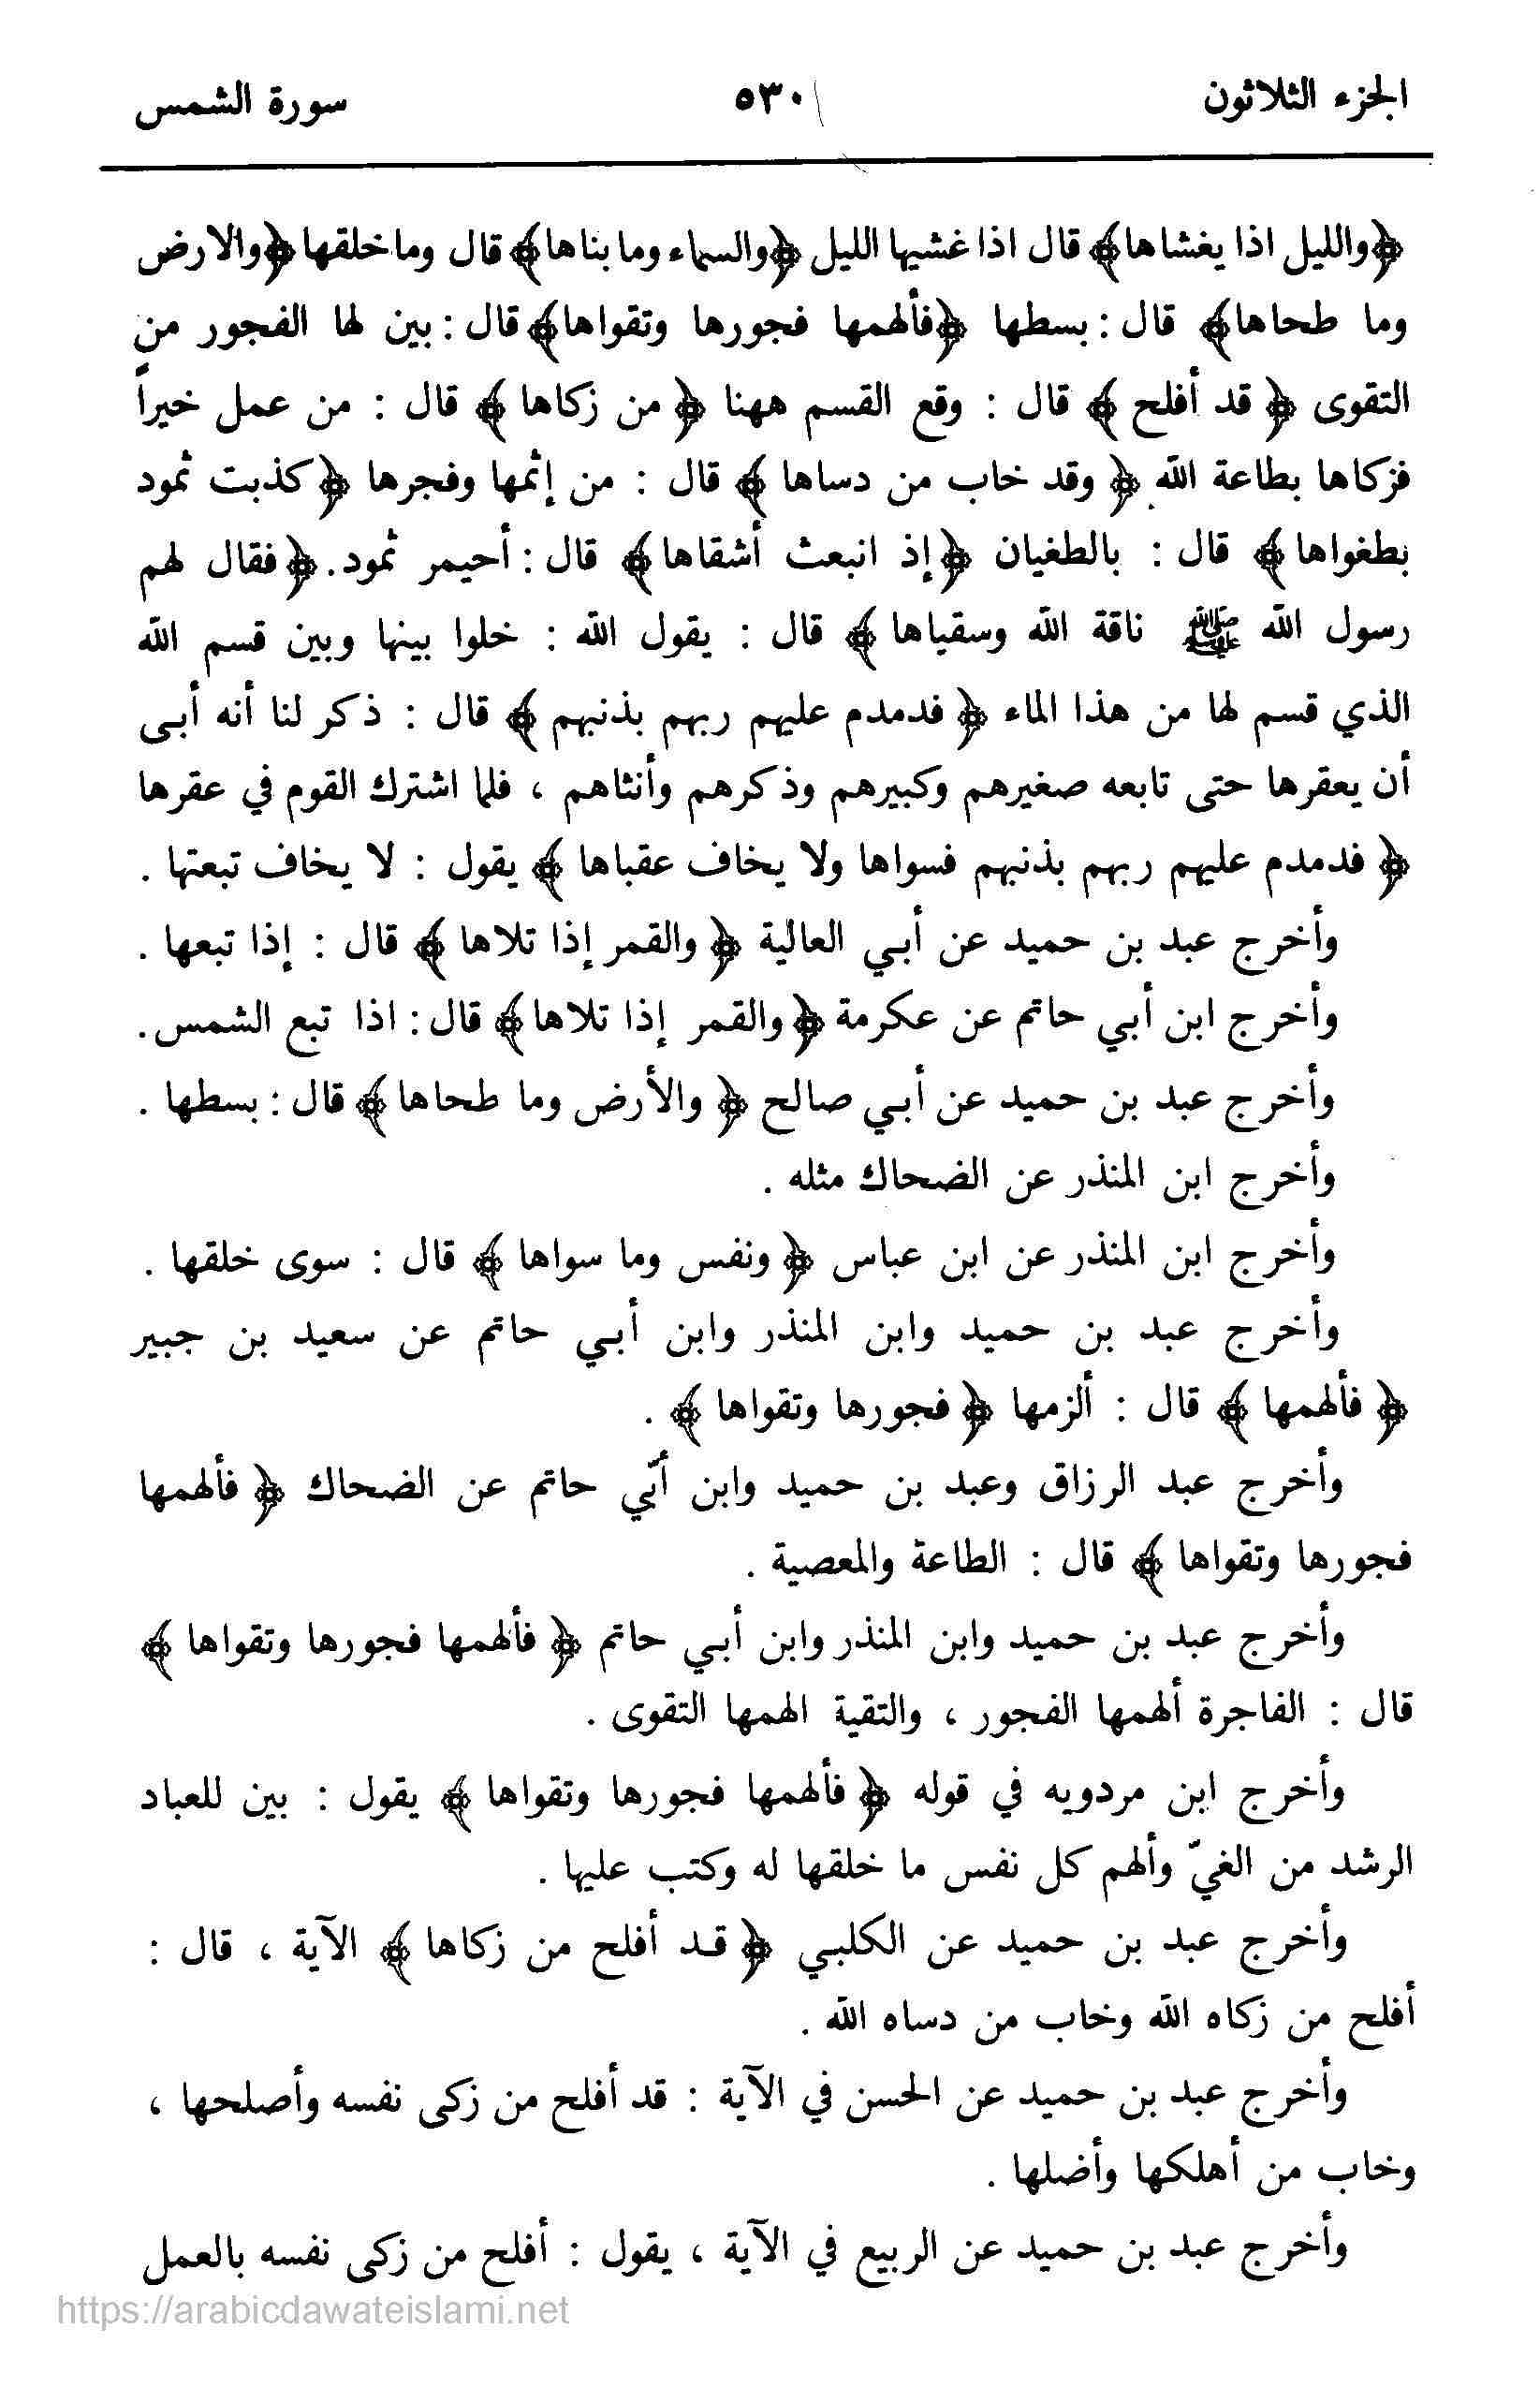 الجزء الثلاثون ٥٣٠ سورة الشمس
﴿والليل اذا يغشاها﴾ قال اذا غشيها الليل ﴿والسماء وما بناها﴾ قال وما خلقها ﴿والارض
وما طحاها﴾ قال : بسطها ﴿فألهمها فجورها وتقواها﴾ قال : بين لها الفجور من
التقوى ﴿ قد أفلح ﴾ قال : وقع القسم ههنا ﴿ من زكاها ﴾ قال : من عمل خيراً
فزكاها بطاعة الله ﴿ وقد خاب من دساها ﴾ قال : من إثمها وفجرها ﴿ كذبت ثمود
بطغواها ﴾ قال : بالطغيان ﴿إذ انبعث أشقاها﴾ قال : أحيمر ثمود . ﴿ فقال لهم
رسول الله ﷺ ناقة الله وسقياها ﴾ قال : يقول الله : خلوا بينها وبين قسم الله
الذي قسم لها من هذا الماء ﴿ فدمدم عليهم ربهم بذنبهم ﴾ قال : ذكر لنا أنه أبى
أن يعقرها حتى تابعه صغيرهم وكبيرهم وذكرهم وأنثاهم ، فلما اشترك القوم في عقرها
﴿ فدمدم عليهم ربهم بذنبهم فسواها ولا يخاف عقباها ﴾ يقول : لا يخاف تبعتها .
وأخرج عبد بن حميد عن أبي العالية ﴿ والقمر إذا تلاها ﴾ قال : إذا تبعها .
وأخرج ابن أبي حاتم عن عكرمة ﴿ والقمر إذا تلاها ﴾ قال : اذا تبع الشمس .
وأخرج عبد بن حميد عن أبي صالح ﴿ والأرض وما طحاها ﴾ قال : بسطها .
وأخرج ابن المنذر عن الضحاك مثله .
وأخرج ابن المنذر عن ابن عباس ﴿ ونفس وما سواها ﴾ قال : سوى خلقها .
وأخرج عبد بن حميد وابن المنذر وابن أبي حاتم عن سعيد بن جبير
﴿ فألهمها ﴾ قال : ألزمها ﴿ فجورها وتقواها ﴾ .
وأخرج عبد الرزاق وعبد بن حميد وابن أبي حاتم عن الضحاك ﴿ فألهمها
فجورها وتقواها ﴾ قال : الطاعة والمعصية .
وأخرج عبد بن حميد وابن المنذر وابن أبي حاتم ﴿ فألهمها فجورها وتقواها ﴾
قال : الفاجرة ألهمها الفجور ، والتقية الهمها التقوى .
وأخرج ابن مردويه في قوله ﴿ فألهمها فجورها وتقواها ﴾ يقول : بين للعباد
الرشد من الغيّ وألهم كل نفس ما خلقها له وكتب عليها .
وأخرج عبد بن حميد عن الكلبي ﴿ قد أفلح من زكاها ﴾ الآية ، قال :
أفلح من زكاه الله وخاب من دساه الله .
وأخرج عبد بن حميد عن الحسن في الآية : قد أفلح من زكى نفسه وأصلحها ،
وخاب من أهلكها وأضلها .
وأخرج عبد بن حميد عن الربيع في الآية ، يقول : أفلح من زكى نفسه بالعمل
https://arabicdawateislami.net